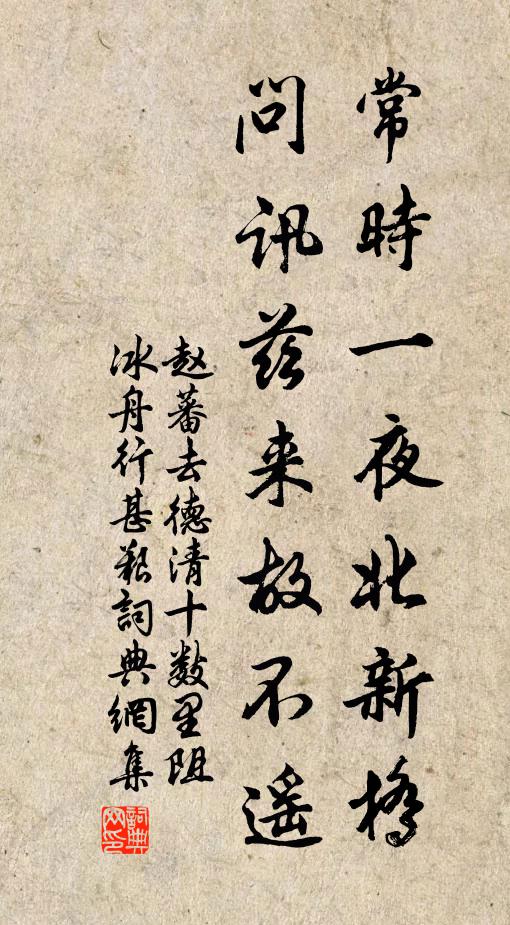 常時一夜北新橋
問訊茲来故不遥
赵蕃去德清十数里阻
冰舟行甚艰詞典網集
詞典网印